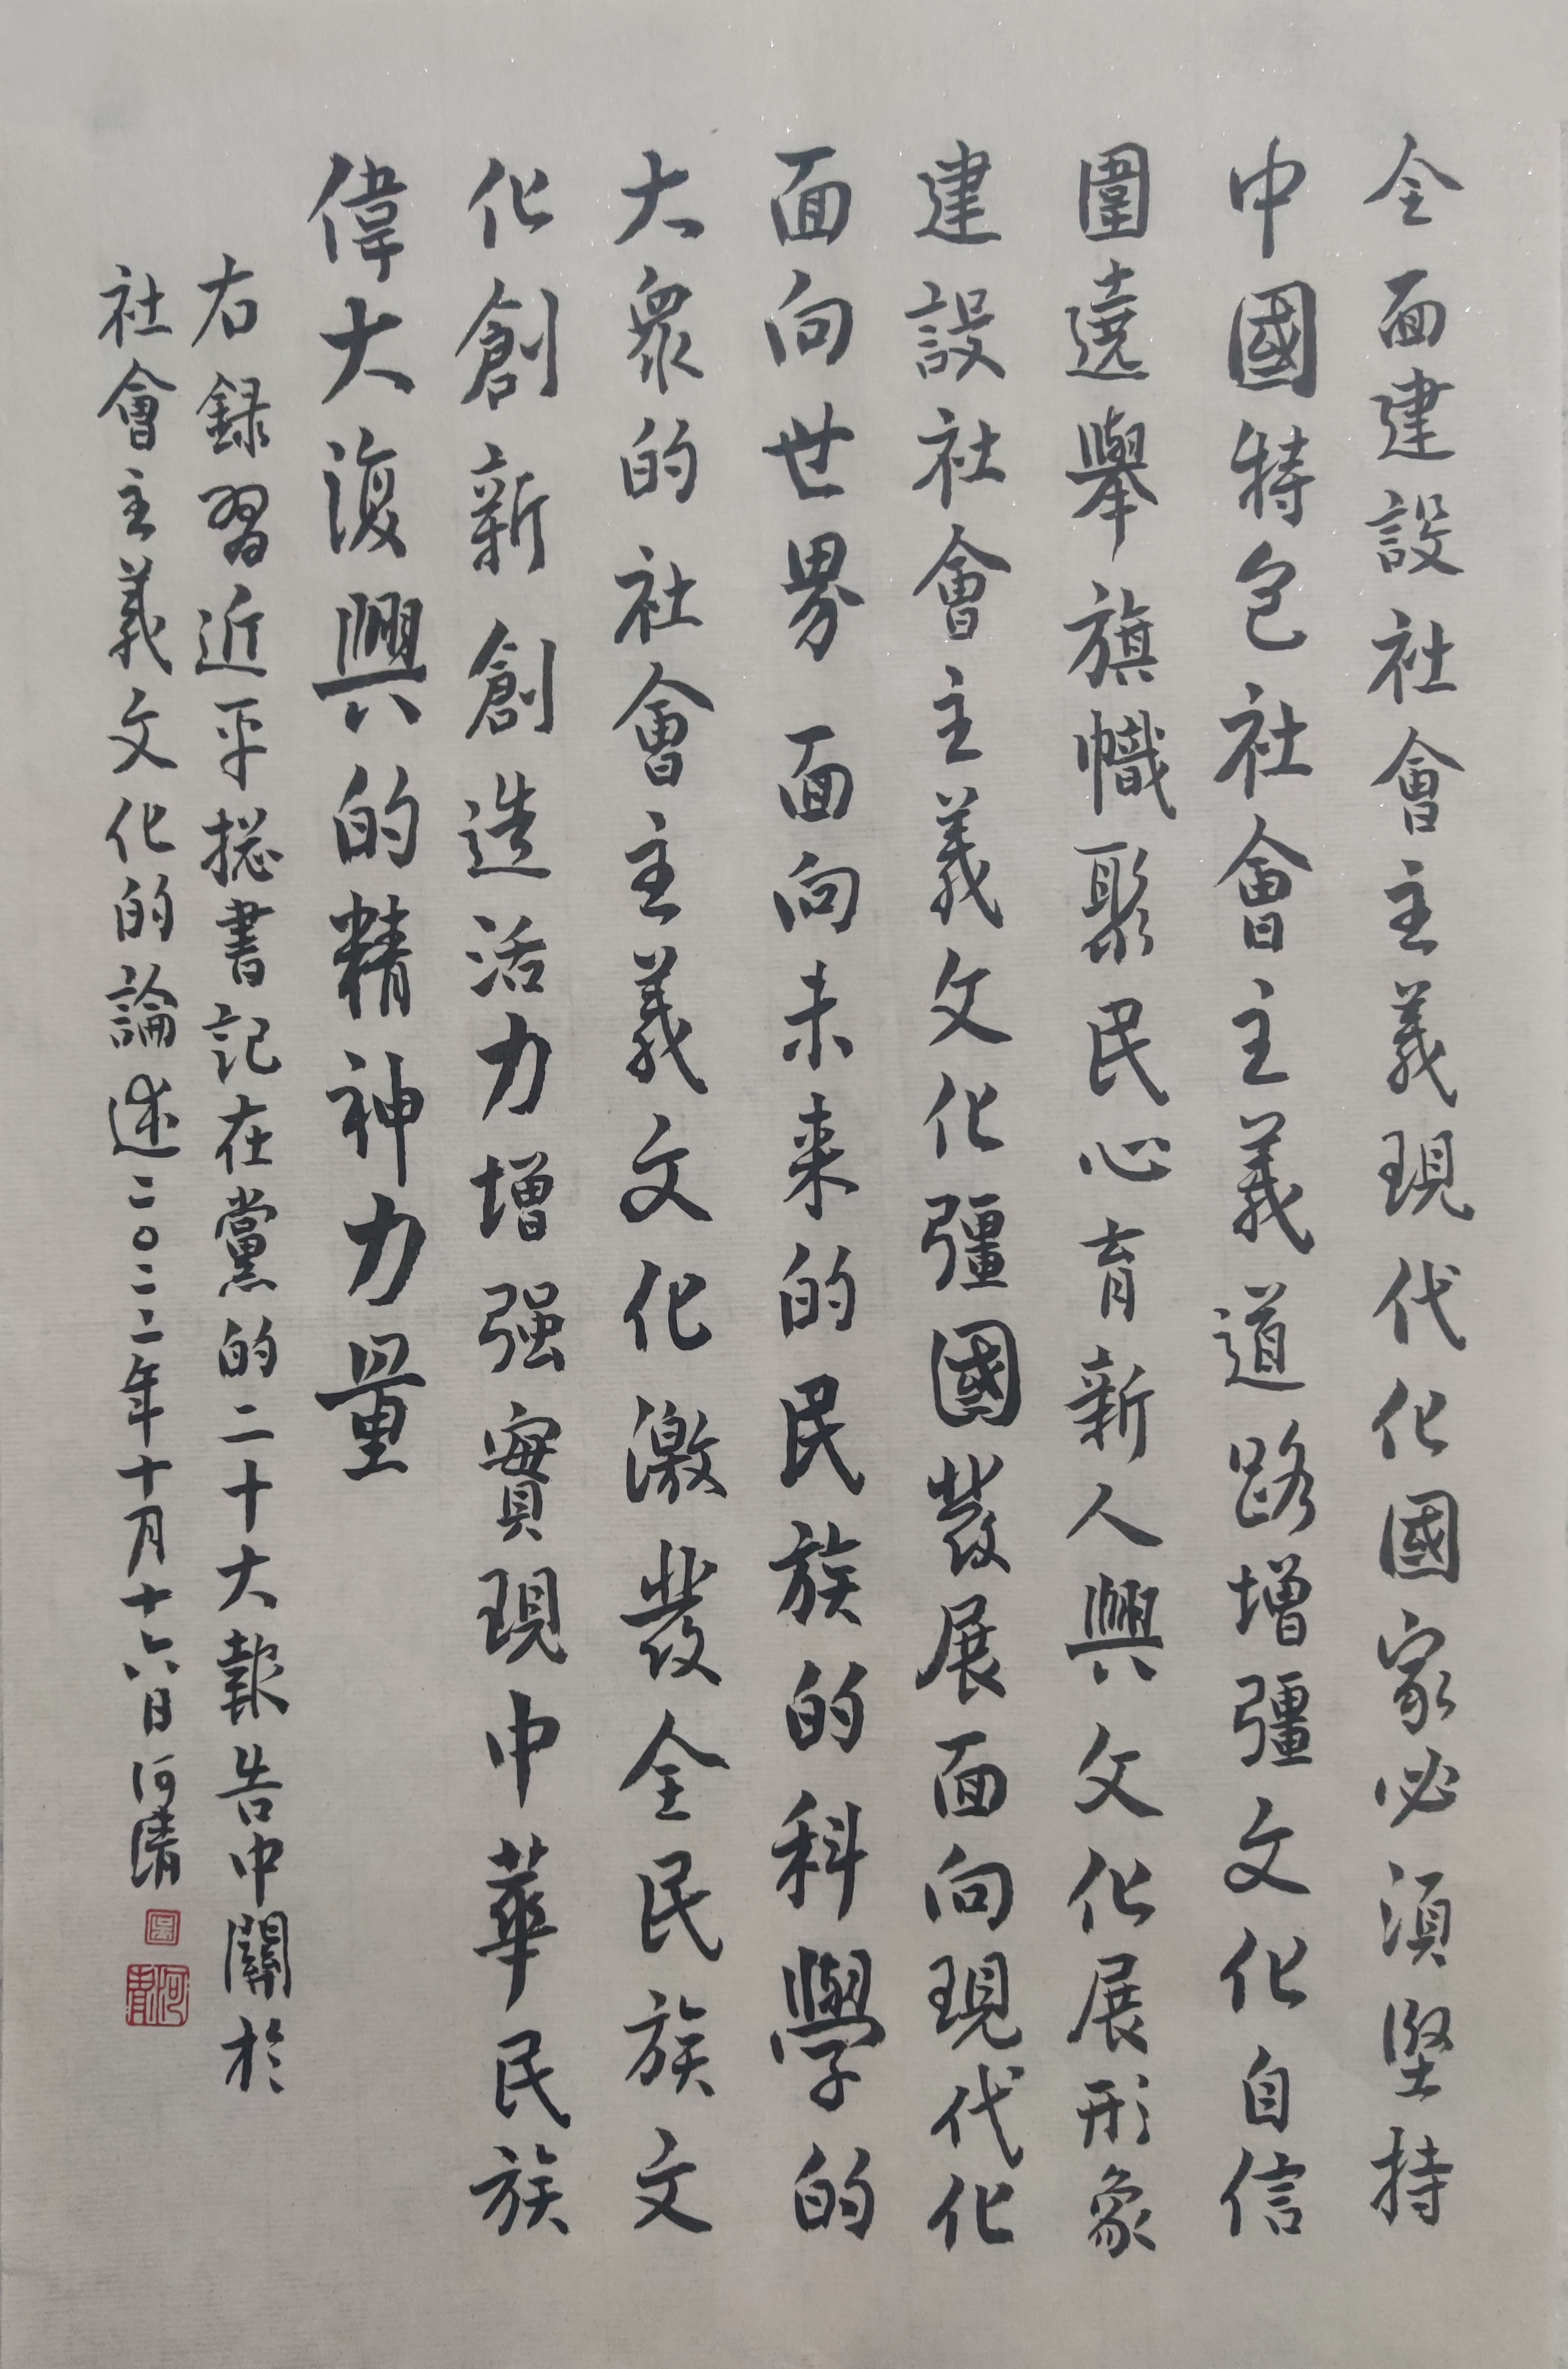 全面建設社會主義現代化國家必須堅持
中國特色社會主義道路增彊文化自信
圍遶舉旗幟聚民心育新人興文化展形象
建設社會主義文化彊國發展面向現代化
面向世界面向未来的民族的科學的
大衆的社會主義文化激發全民族文
化創新創造活力增强實現中華民族
偉大復興的精神力量
右録習近平揔書記在黨的二十大報告中關於
社會主義文化的論述二〇二二年十月十六日河清